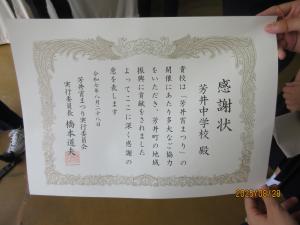 感謝状
芳井中学校 殿
貴校は「芳井ふるさとまつり」の
開催にあたり多大なご協力
をいただき、芳井町の地域
振興に貢献をされました
よってここに深く感謝の
意を表します
令和七年八月二十八日
芳井ふるさとまつり実行委員会
実行委員長 橋本道夫
2025/08/29